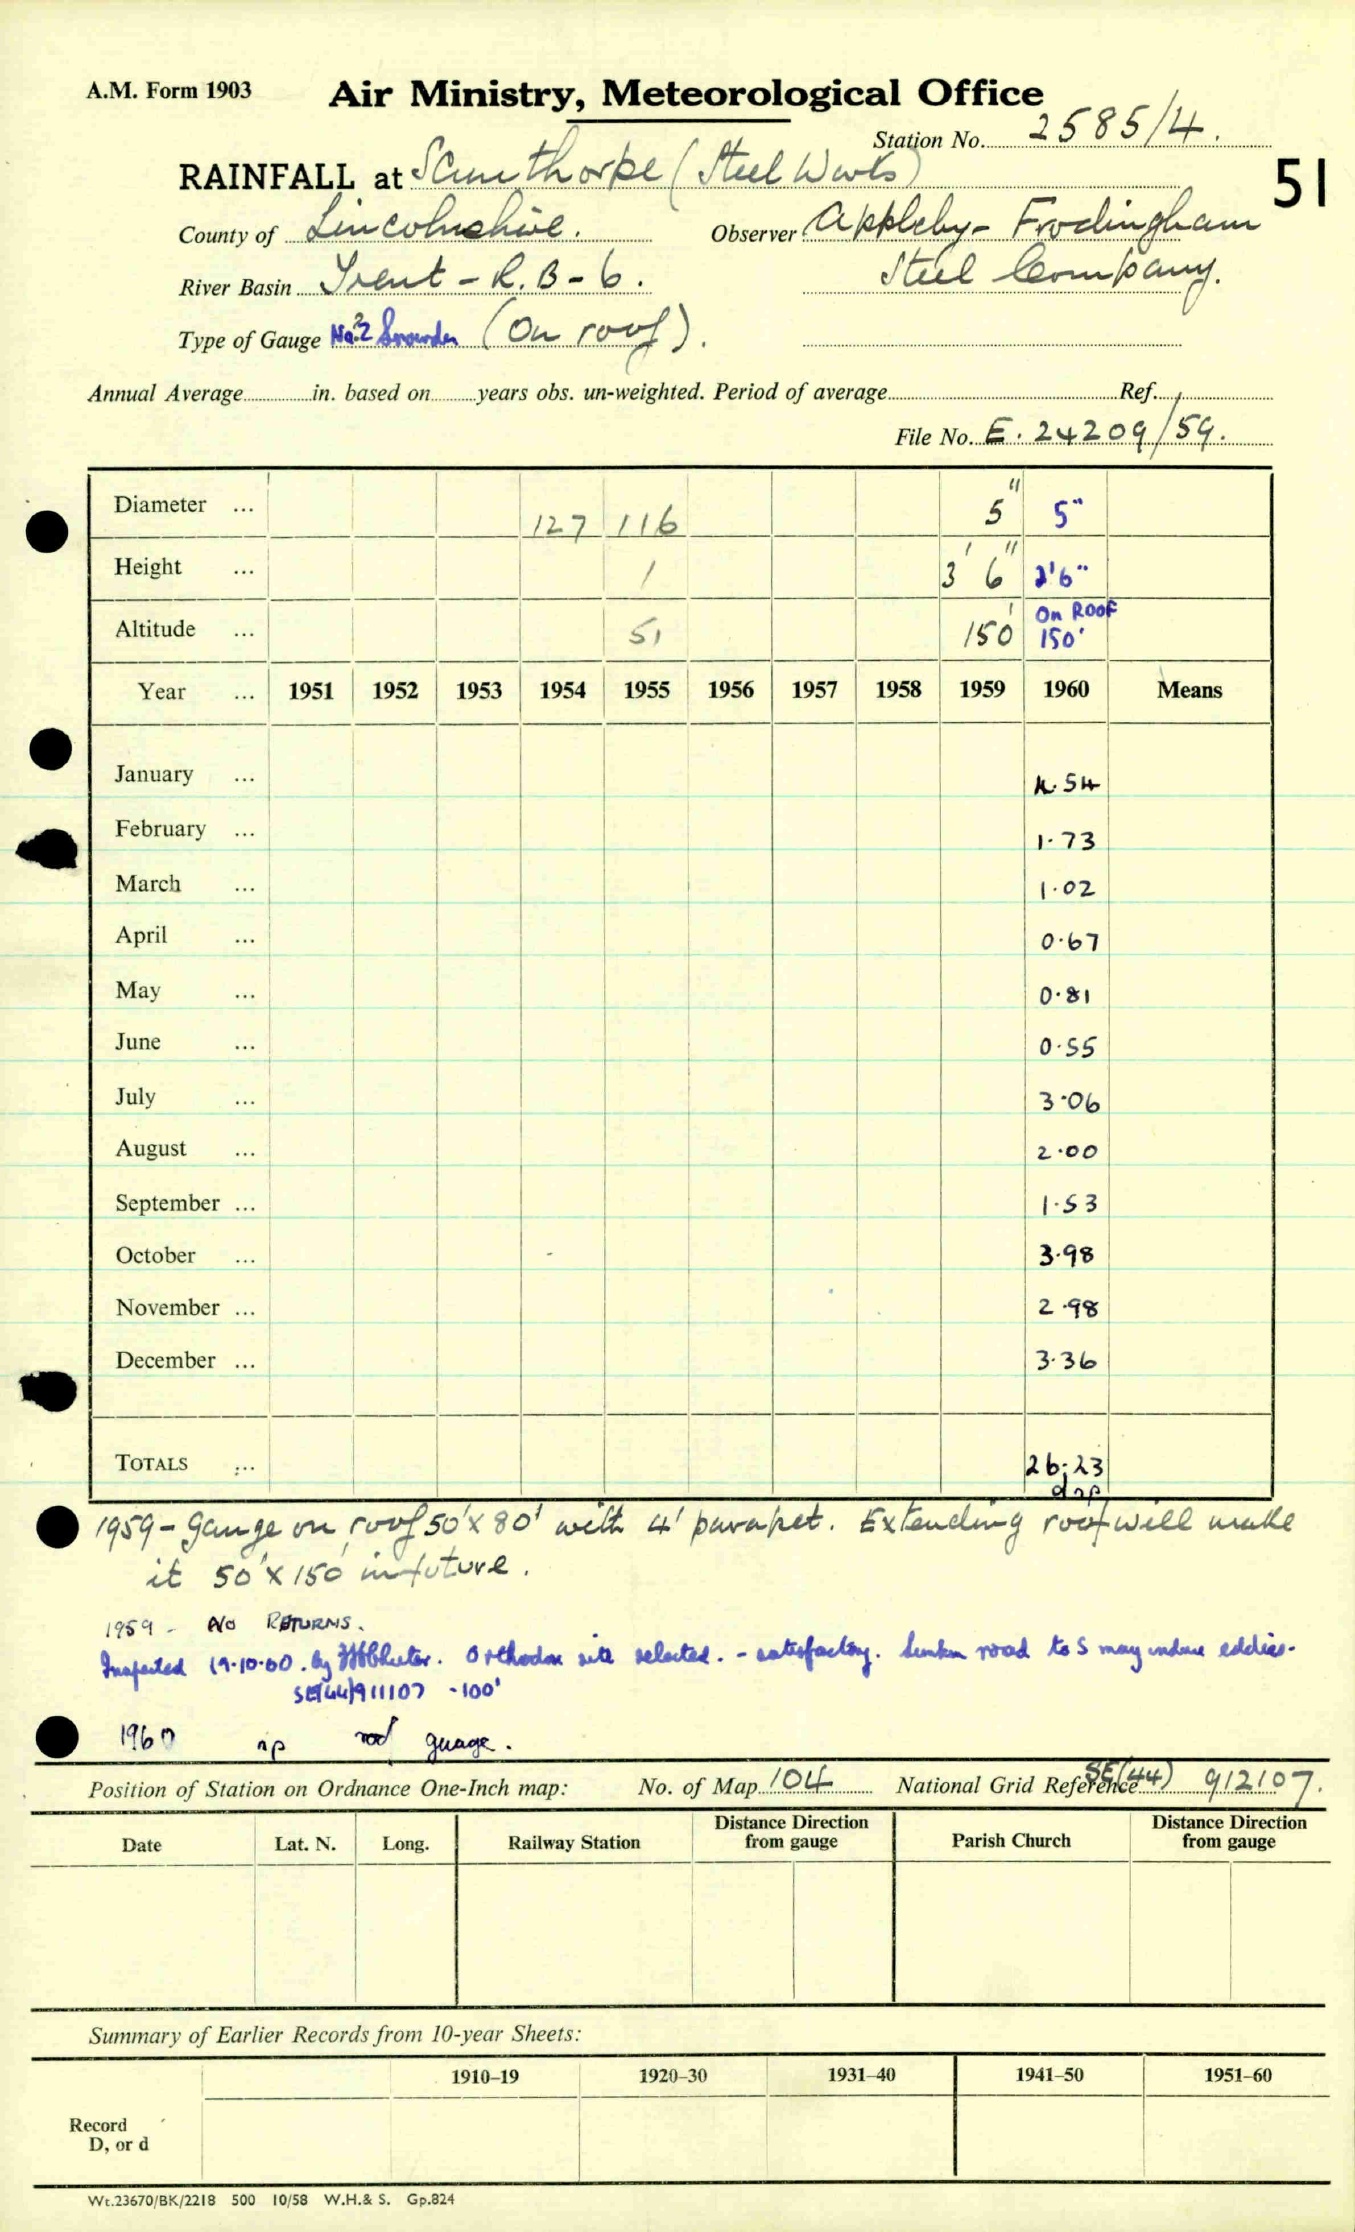 A.M. Form 1903 Air Ministry, Meteorological Office
Station No. 2585/4.
RAINFALL at Scunthorpe (Steel Works) 51
County of Lincolnshire. Observer Appleby - Frodingham
River Basin Trent - R.B - 6. Steel Company.
Type of Gauge No. 2 Snowdon (On roof).
Annual Average in. based on years obs. un-weighted. Period of average Ref.
File No. E. 24209/59.
Diameter ... 127 116 5" 5"
Height ... 1 3' 6" 2'6"
On ROOF
Altitude ... 51 150' 150'
Year ... 1951 1952 1953 1954 1955 1956 1957 1958 1959 1960 Means
January ... 4.54
February ... 1.73
March ... 1.02
April ... 0.67
May ... 0.81
June ... 0.55
July ... 3.06
August ... 2.00
September ... 1.53
October ... 3.98
November ... 2.98
December ... 3.36
TOTALS ... 26.23
1959 - Gauge on roof 50' x 80' with 4' parapet. Extending roof will make
it 50' x 150' in future.
1959 - No RETURNS.
Inspected 19.10.60. by Orthodox site selected. - satisfactory. Sunken road to S may induce eddies.
SE(44)911107 - 100'
1960 np roof guage.
Position of Station on Ordnance One-Inch map: No. of Map 104 National Grid Reference SE(44) 912107.
Date Lat. N. Long. Railway Station Distance Direction from gauge Parish Church Distance Direction from gauge
Summary of Earlier Records from 10-year Sheets:
1910–19 1920–30 1931–40 1941–50 1951–60
Record
D, or d
Wt.23670/BK/2218 500 10/58 W.H.& S. Gp.824